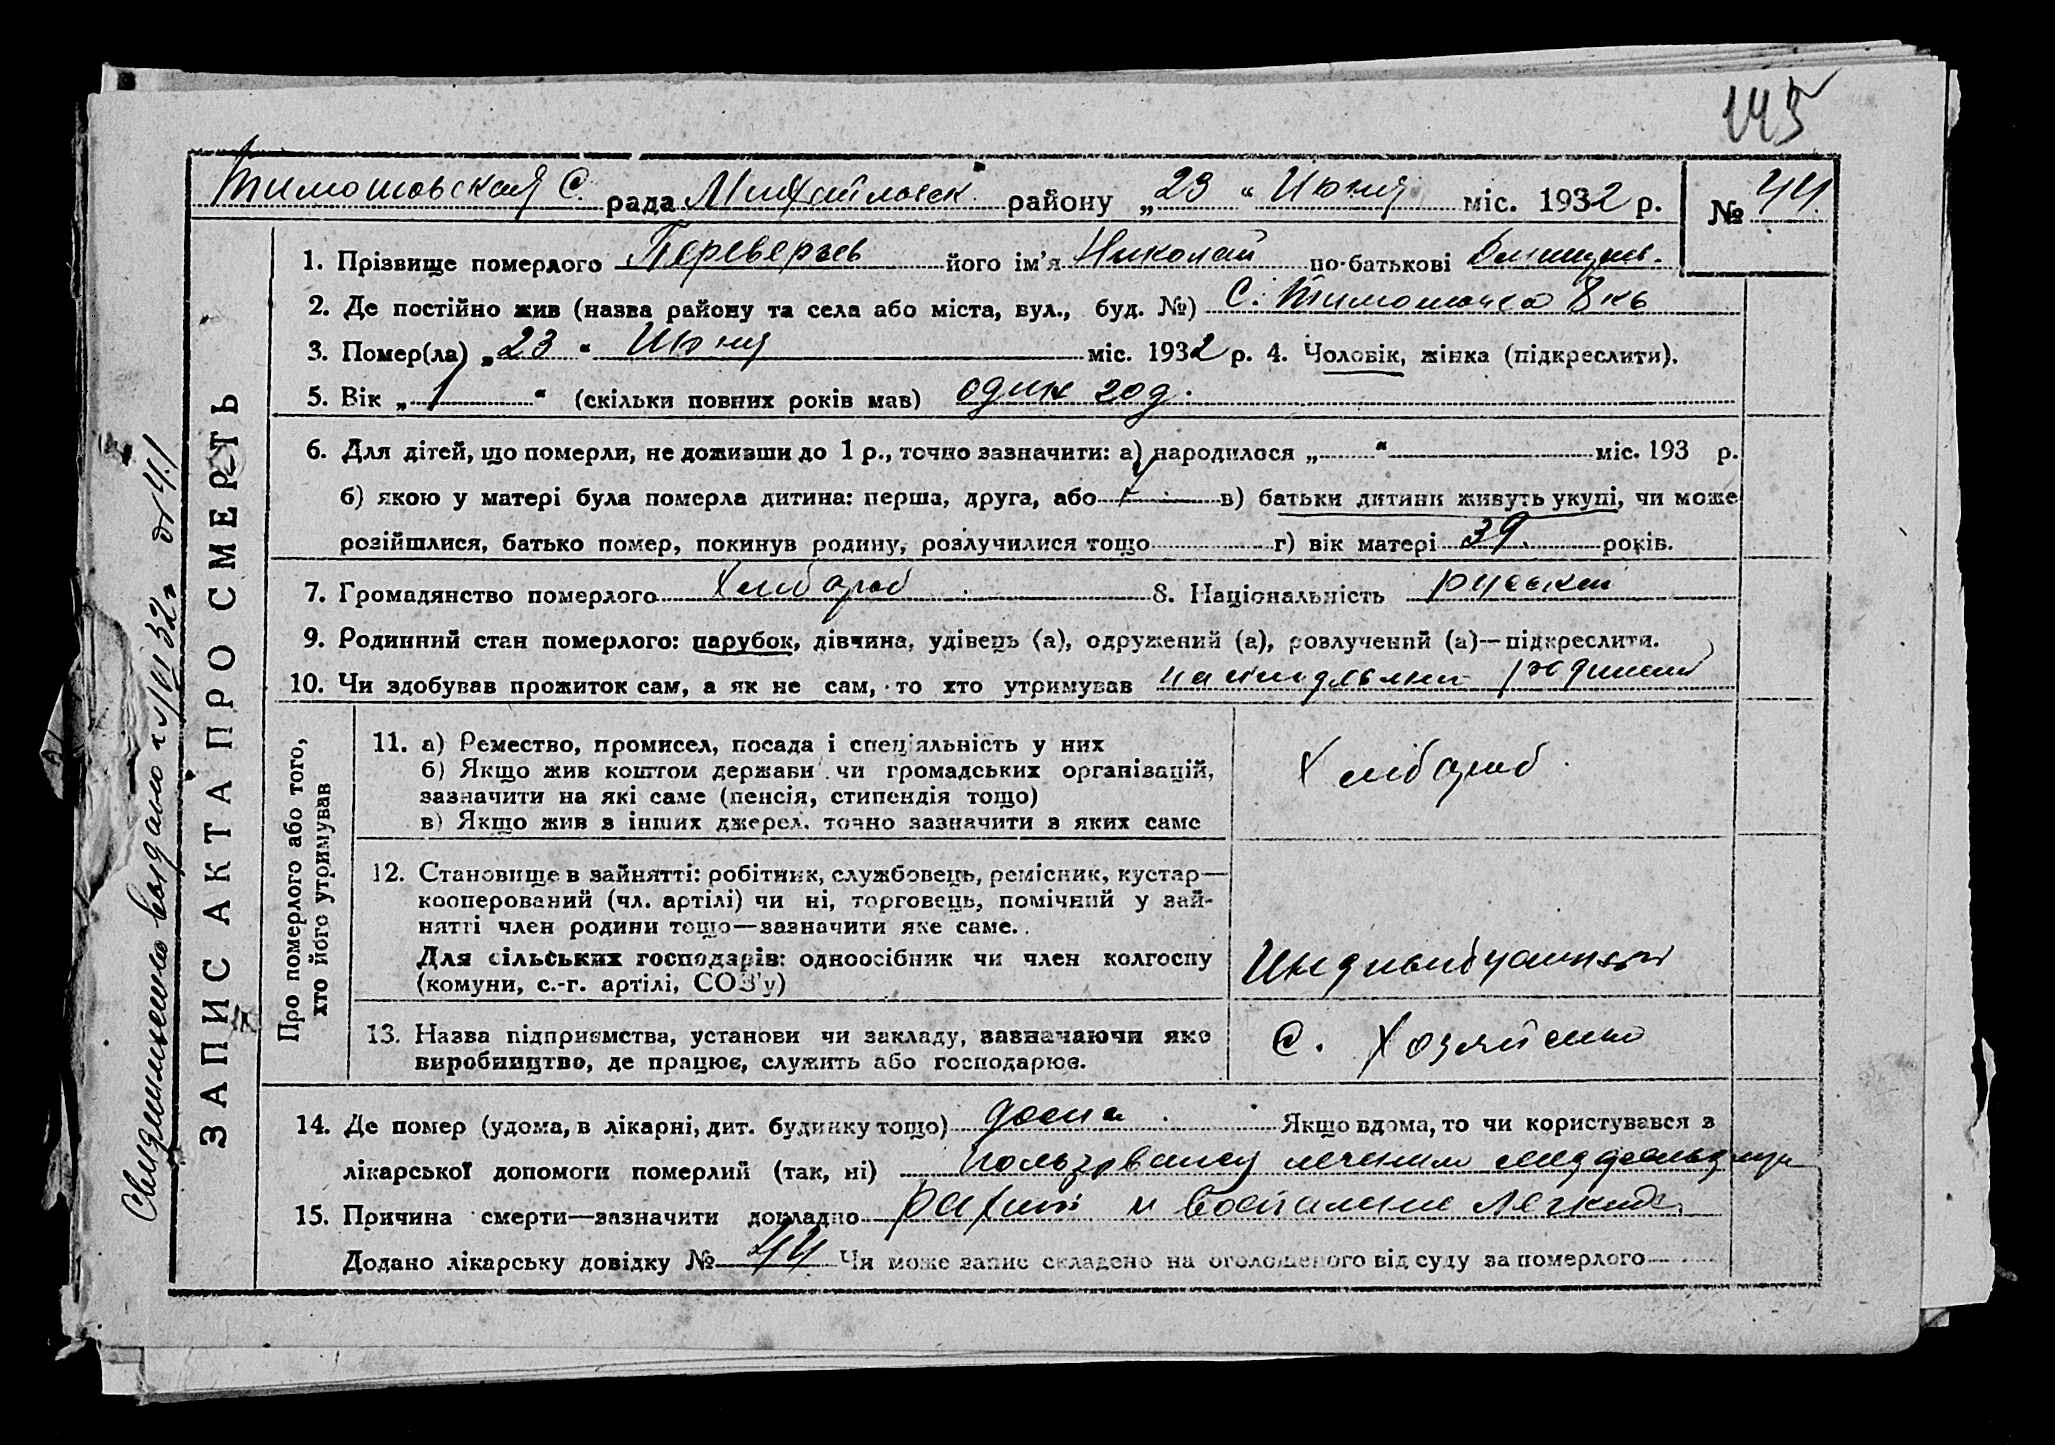 145
Тимошовская С. рада Михайловск. району „23“ Июня міс. 1932 р. № 44
1. Прізвище померлого Переверзев його ім'я Николай по-батькові
2. Де постійно жив (назва району та села або міста, вул., буд. №) С. Тимошовка
3. Помер(ла) „23“ Июня міс. 1932 р. 4. Чоловік, жінка (підкреслити).
5. Вік „1“ (скільки повних років мав) один год.
6. Для дітей, що померли, не доживши до 1 р., точно зазначити: а) народилося „ “ міс. 193 р.
б) якою у матері була померла дитина: перша, друга, або в) батьки дитини живуть укупі, чи може
розійшлися, батько помер, покинув родину, розлучилися тощо г) вік матері 39 років.
7. Громадянство померлого Хлибороб 8. Національність русский
9. Родинний стан померлого: парубок, дівчина, удівець (а), одружений (а), розлучений (а)—підкреслити.
10. Чи здобував прожиток сам, а як не сам, то хто утримував на иждевении родителей
ЗАПИС АКТА ПРО СМЕРТЬ
Про померлого або того,
хто його утримував
11. а) Ремество, промисел, посада і спеціяльність у них
б) Якщо жив коштом держави чи громадських організацій,
зазначити на які саме (пенсія, стипендія тощо)
в) Якщо жив з інших джерел, точно зазначити з яких саме
Хлибороб
12. Становище в зайнятті: робітник, службовець, ремісник, кустар—
кооперований (чл. артілі) чи ні, торговець, помічний у зай-
нятті член родини тощо—зазначити яке саме.
Для сільських господарів: одноосібник чи член колгоспу
(комуни, с.-г. артілі, СОЗ'у)
13. Назва підприємства, установи чи закладу, зазначаючи яке
виробництво, де працює, служить або господарює.
С. Хозяйство
14. Де помер (удома, в лікарні, дит. будинку тощо) дома Якщо вдома, то чи користувався з
лікарської допомоги померлий (так, ні) пользовался лечением
15. Причина смерти—зазначити докладно рахит и воспаление легких
Додано лікарську довідку № 44 Чи може запис складено на оголошеного від суду за померлого
Свидетельство выдано